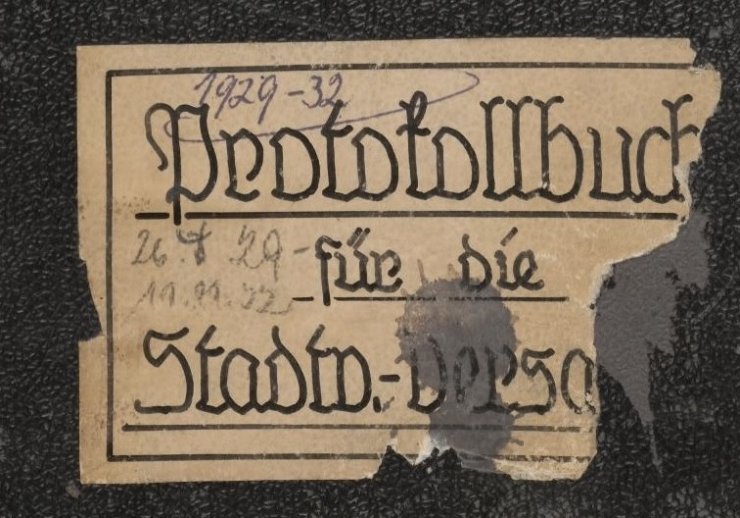 1929-32
Protokollbuch
für die
26. 29-
11.11.32
Stadtv.-Versa